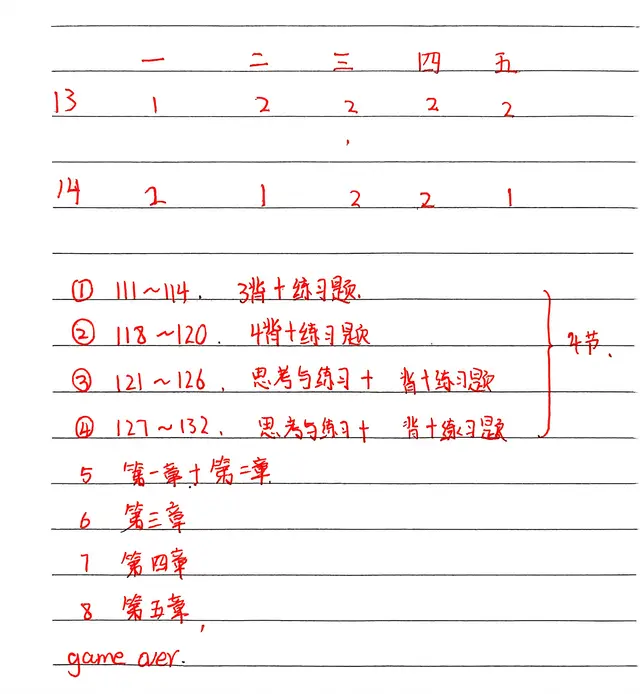 一 二 三 四 五
13 1 2 2 2 2
14 2 1 2 2 1
① 111~114. 3背+练习题.
② 118~120. 4背+练习题
③ 121~126. 思考与练习+ 背+练习题
④ 127~132. 思考与练习+ 背+练习题
4节.
5 第一章+第二章
6 第三章
7 第四章
8 第五章,
game over.